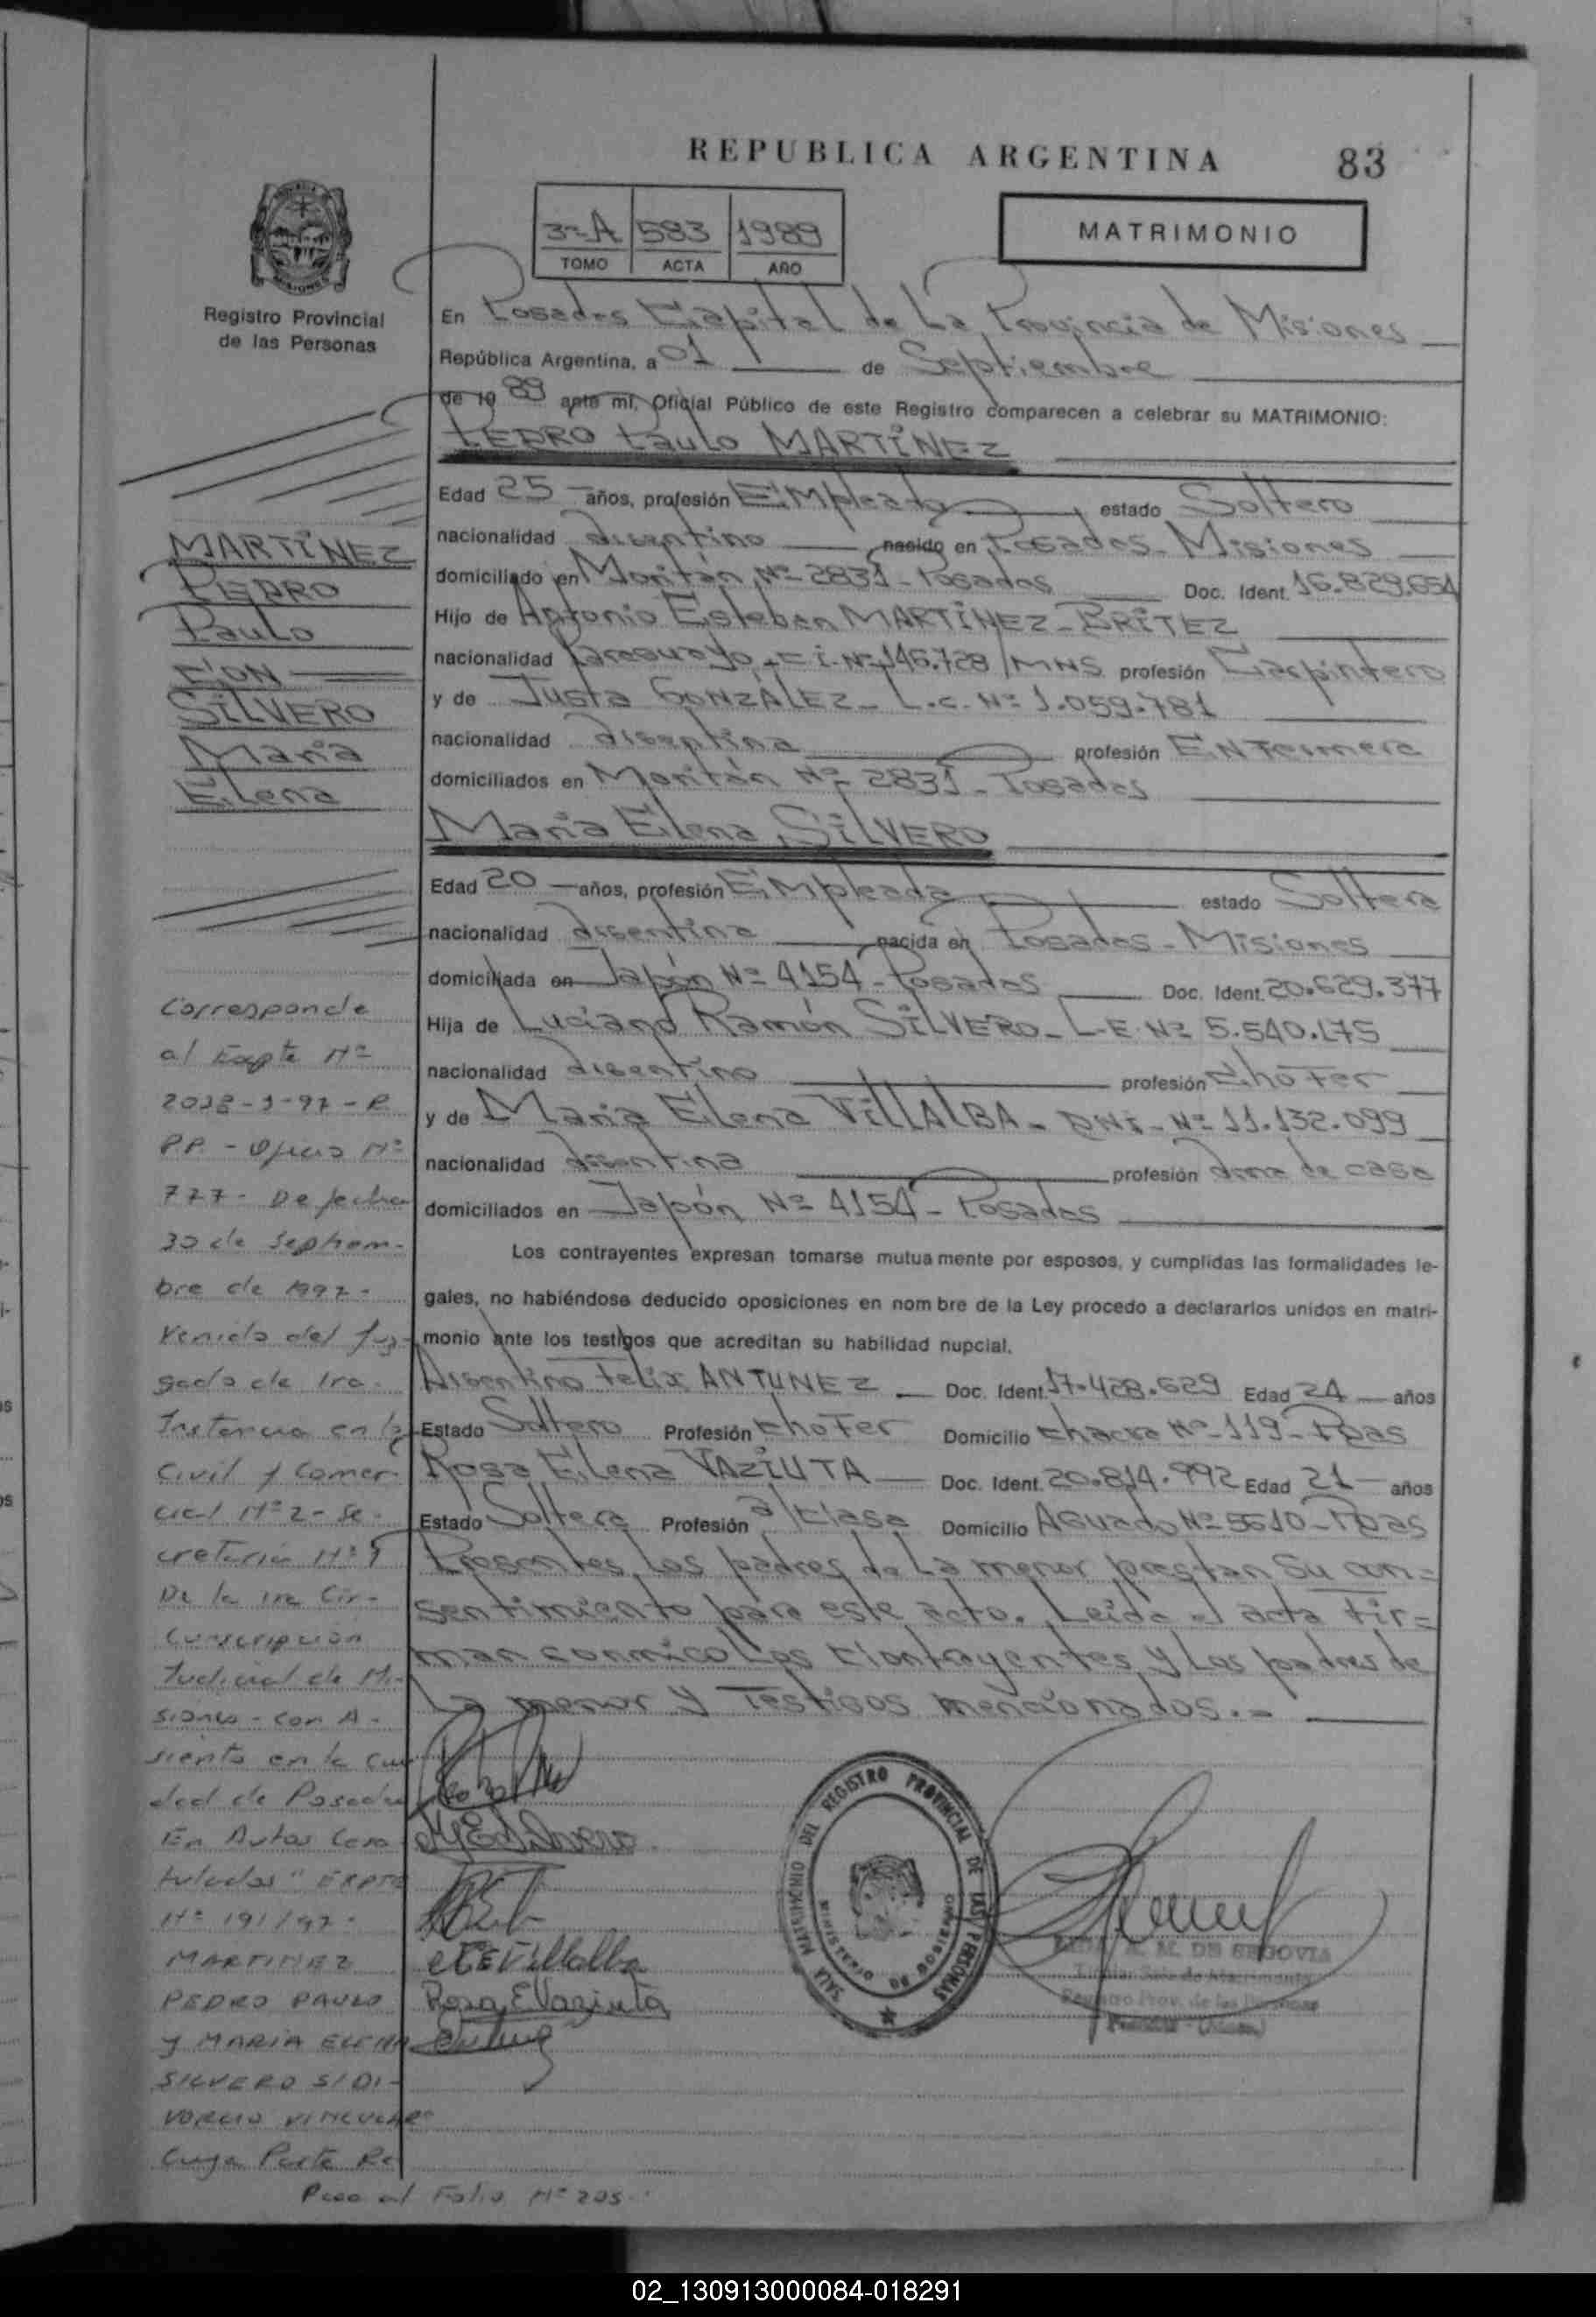 REPUBLICA ARGENTINA 83
3º A 583 1989
TOMO ACTA AÑO
MATRIMONIO
MISIONES
Registro Provincial
de las Personas
En Posadas Capital de La Provincia de Misiones
República Argentina, a 01 de Septiembre
de 19 89 ante mí, Oficial Público de este Registro comparecen a celebrar su MATRIMONIO:
PEDRO Paulo MARTINEZ
Edad 25 años, profesión Empleado estado Soltero
nacionalidad argentino nacido en Posadas - Misiones
domiciliado en Moritán Nº 2831 - Posadas Doc. Ident. 16.829.654
Hijo de Antonio Esteban MARTINEZ - BRITEZ
nacionalidad Paraguayo - C.I. Nº 146.728/MNS profesión Carpintero
y de Justa GONZÁLEZ - L.C. Nº 1.059.781
nacionalidad argentina profesión Enfermera
domiciliados en Moritán Nº 2831 - Posadas
Maria Elena SILVERO
Edad 20 años, profesión Empleada estado Soltera
nacionalidad argentina nacida en Posadas - Misiones
domiciliada en Japón Nº 4154 - Posadas Doc. Ident. 20.629.377
Hija de Luciano Ramón SILVERO - L.E. Nº 5.540.175
nacionalidad argentino profesión Chofer
y de Maria Elena VILLALBA - DNI - Nº 11.132.099
nacionalidad argentina profesión ama de casa
domiciliados en Japón Nº 4154 - Posadas
Los contrayentes expresan tomarse mutuamente por esposos, y cumplidas las formalidades le-
gales, no habiéndose deducido oposiciones en nombre de la Ley procedo a declararlos unidos en matri-
monio ante los testigos que acreditan su habilidad nupcial.
Argentino Felix ANTUNEZ Doc. Ident. 17.428.629 Edad 24 años
Estado Soltero Profesión Chofer Domicilio Chacra Nº 119 - Pdas
Rosa Elena VAZIUTA Doc. Ident. 20.814.992 Edad 21 años
Estado Soltera Profesión a/Casa Domicilio Aguado Nº 5610 - Pdas
Presentes Los padres de La menor prestan su con=
sentimiento para este acto. Leida el acta fir=
man conmico Los Contrayentes y Los padres de
La menor y Testigos mencionados.=
MARTINEZ
PEDRO
Paulo
CON
SILVERO
Maria
Elena
Corresponde
al Expte Nº
2038-J-97-R
P.P. - Oficio Nº
777 - De fecha
30 de Septiem-
bre de 1997 -
Venido del Juz-
gado de 1ra.
Instancia en lo
Civil y Comer-
cial Nº 2 - Se-
cretaria Nº
De la 1ra Cir-
cunscripción
Judicial de Mi-
siones - con A-
siento en la ciu
dad de Posadas
En Autos Cara
tulados " EXPTE
Nº 191/97 -
MARTINEZ
PEDRO PAULO
y MARIA ELENA
SILVERO S/DI-
VORCIO VINCULAR"
Cuya Parte Re
Pasa al Folio Nº 205
MESilvero
MEVillalba
Rosa EVaziuta
SALA MATRIMONIO DEL REGISTRO PROVINCIAL DE LAS PERSONAS
MINISTERIO DE GOBIERNO
M. DE SEGOVIA
Titular Sala de Matrimonio
Registro Prov. de las Personas
02_130913000084-018291